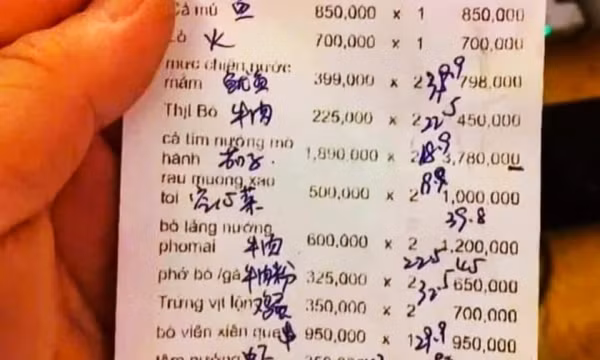 Cá mú 鱼 850,000 x 1 850,000
Lò 火 700,000 x 1 700,000
mực chiên nước
mắm 鱿鱼 399,000 x 2 39.9 798,000
Thịt Bò 牛肉 225,000 x 2 22.5 450,000
cà tím nướng mỡ
hành 茄子 1,890,000 x 2 18.9 3,780,000
rau muong xao 8.9
toi 空心菜 500,000 x 2 1,000,000
39.8
bò lảng nướng
phomai 牛肉 600,000 x 2 1,200,000
22.5 45
phở bò /gà 牛肉粉 325,000 x 2 32.5 650,000
Trứng vịt lộn 350,000 x 2 700,000
bò viên xiên que 950,000 x 1 29.9 950,000